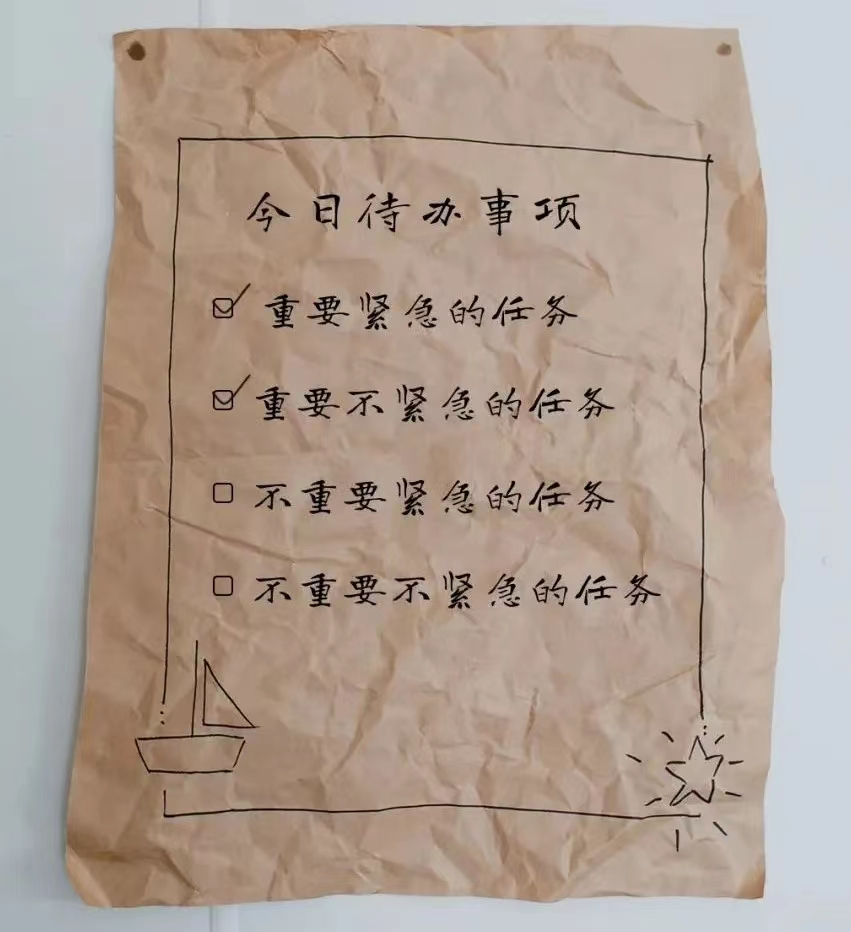 今日待办事项
☑ 重要紧急的任务
☑ 重要不紧急的任务
☐ 不重要紧急的任务
☐ 不重要不紧急的任务